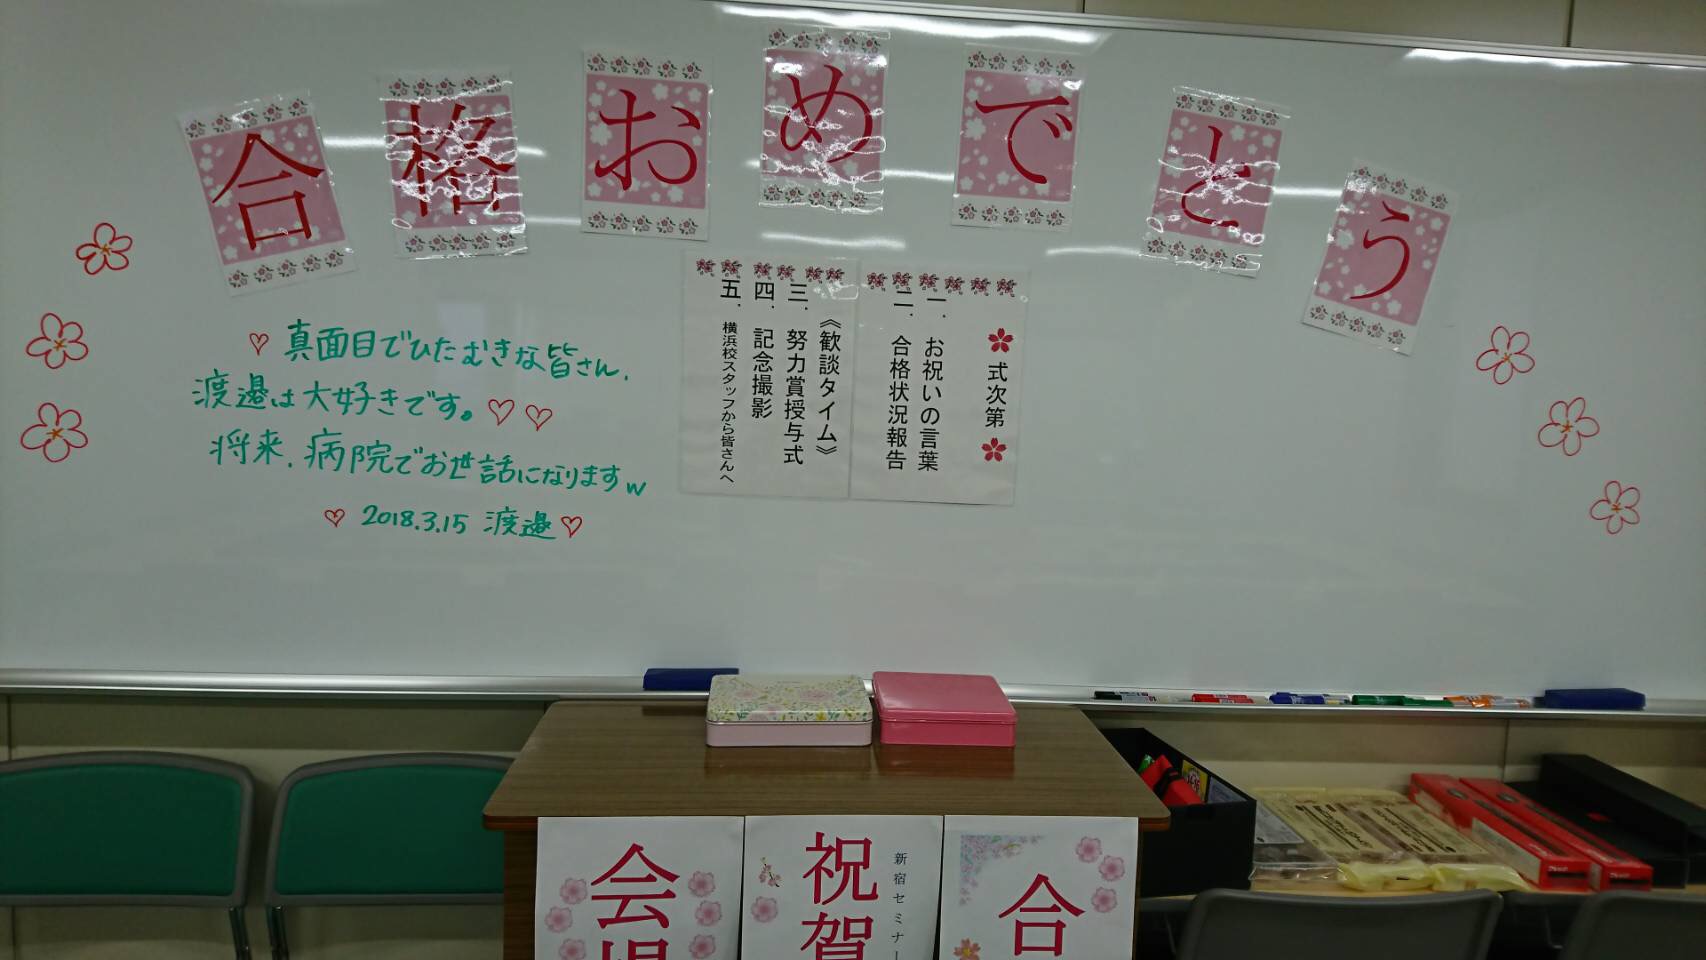 合格おめでとう
真面目でひたむきな皆さん、
渡邉は大好きです。
将来、病院でお世話になりますw
2018.3.15 渡邉
式次第
一．お祝いの言葉
二．合格状況報告
《歓談タイム》
三．努力賞授与式
四．記念撮影
五．横浜校スタッフから皆さんへ
合
新宿セミナー
祝賀
会場